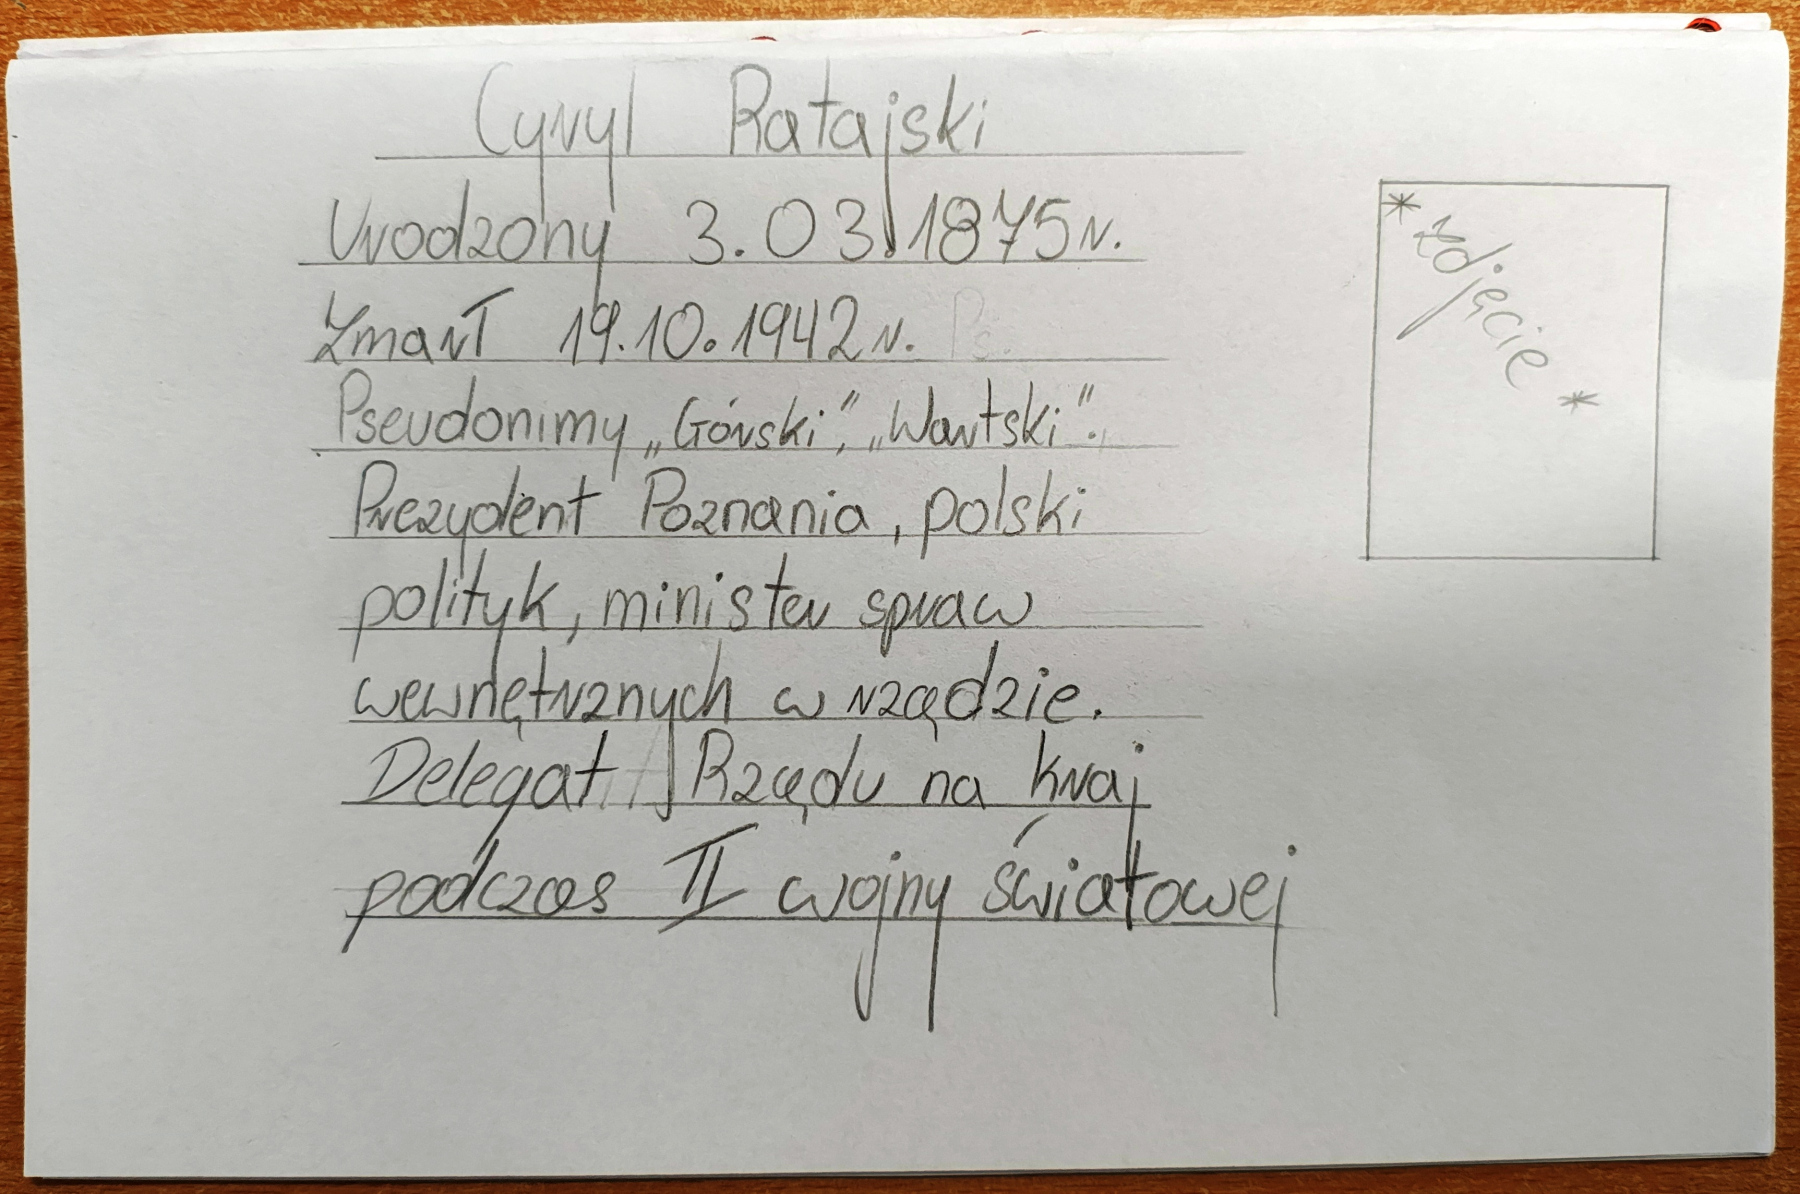 Cyryl Ratajski
Urodzony 3.03.1875r.
Zmarł 19.10.1942r. Ps.
Pseudonimy „Górski”, „Wartski”.
Prezydent Poznania, polski
polityk, minister spraw
wewnętrznych w rządzie.
Delegat Rządu na kraj
podczas II wojny światowej
* zdjęcie *